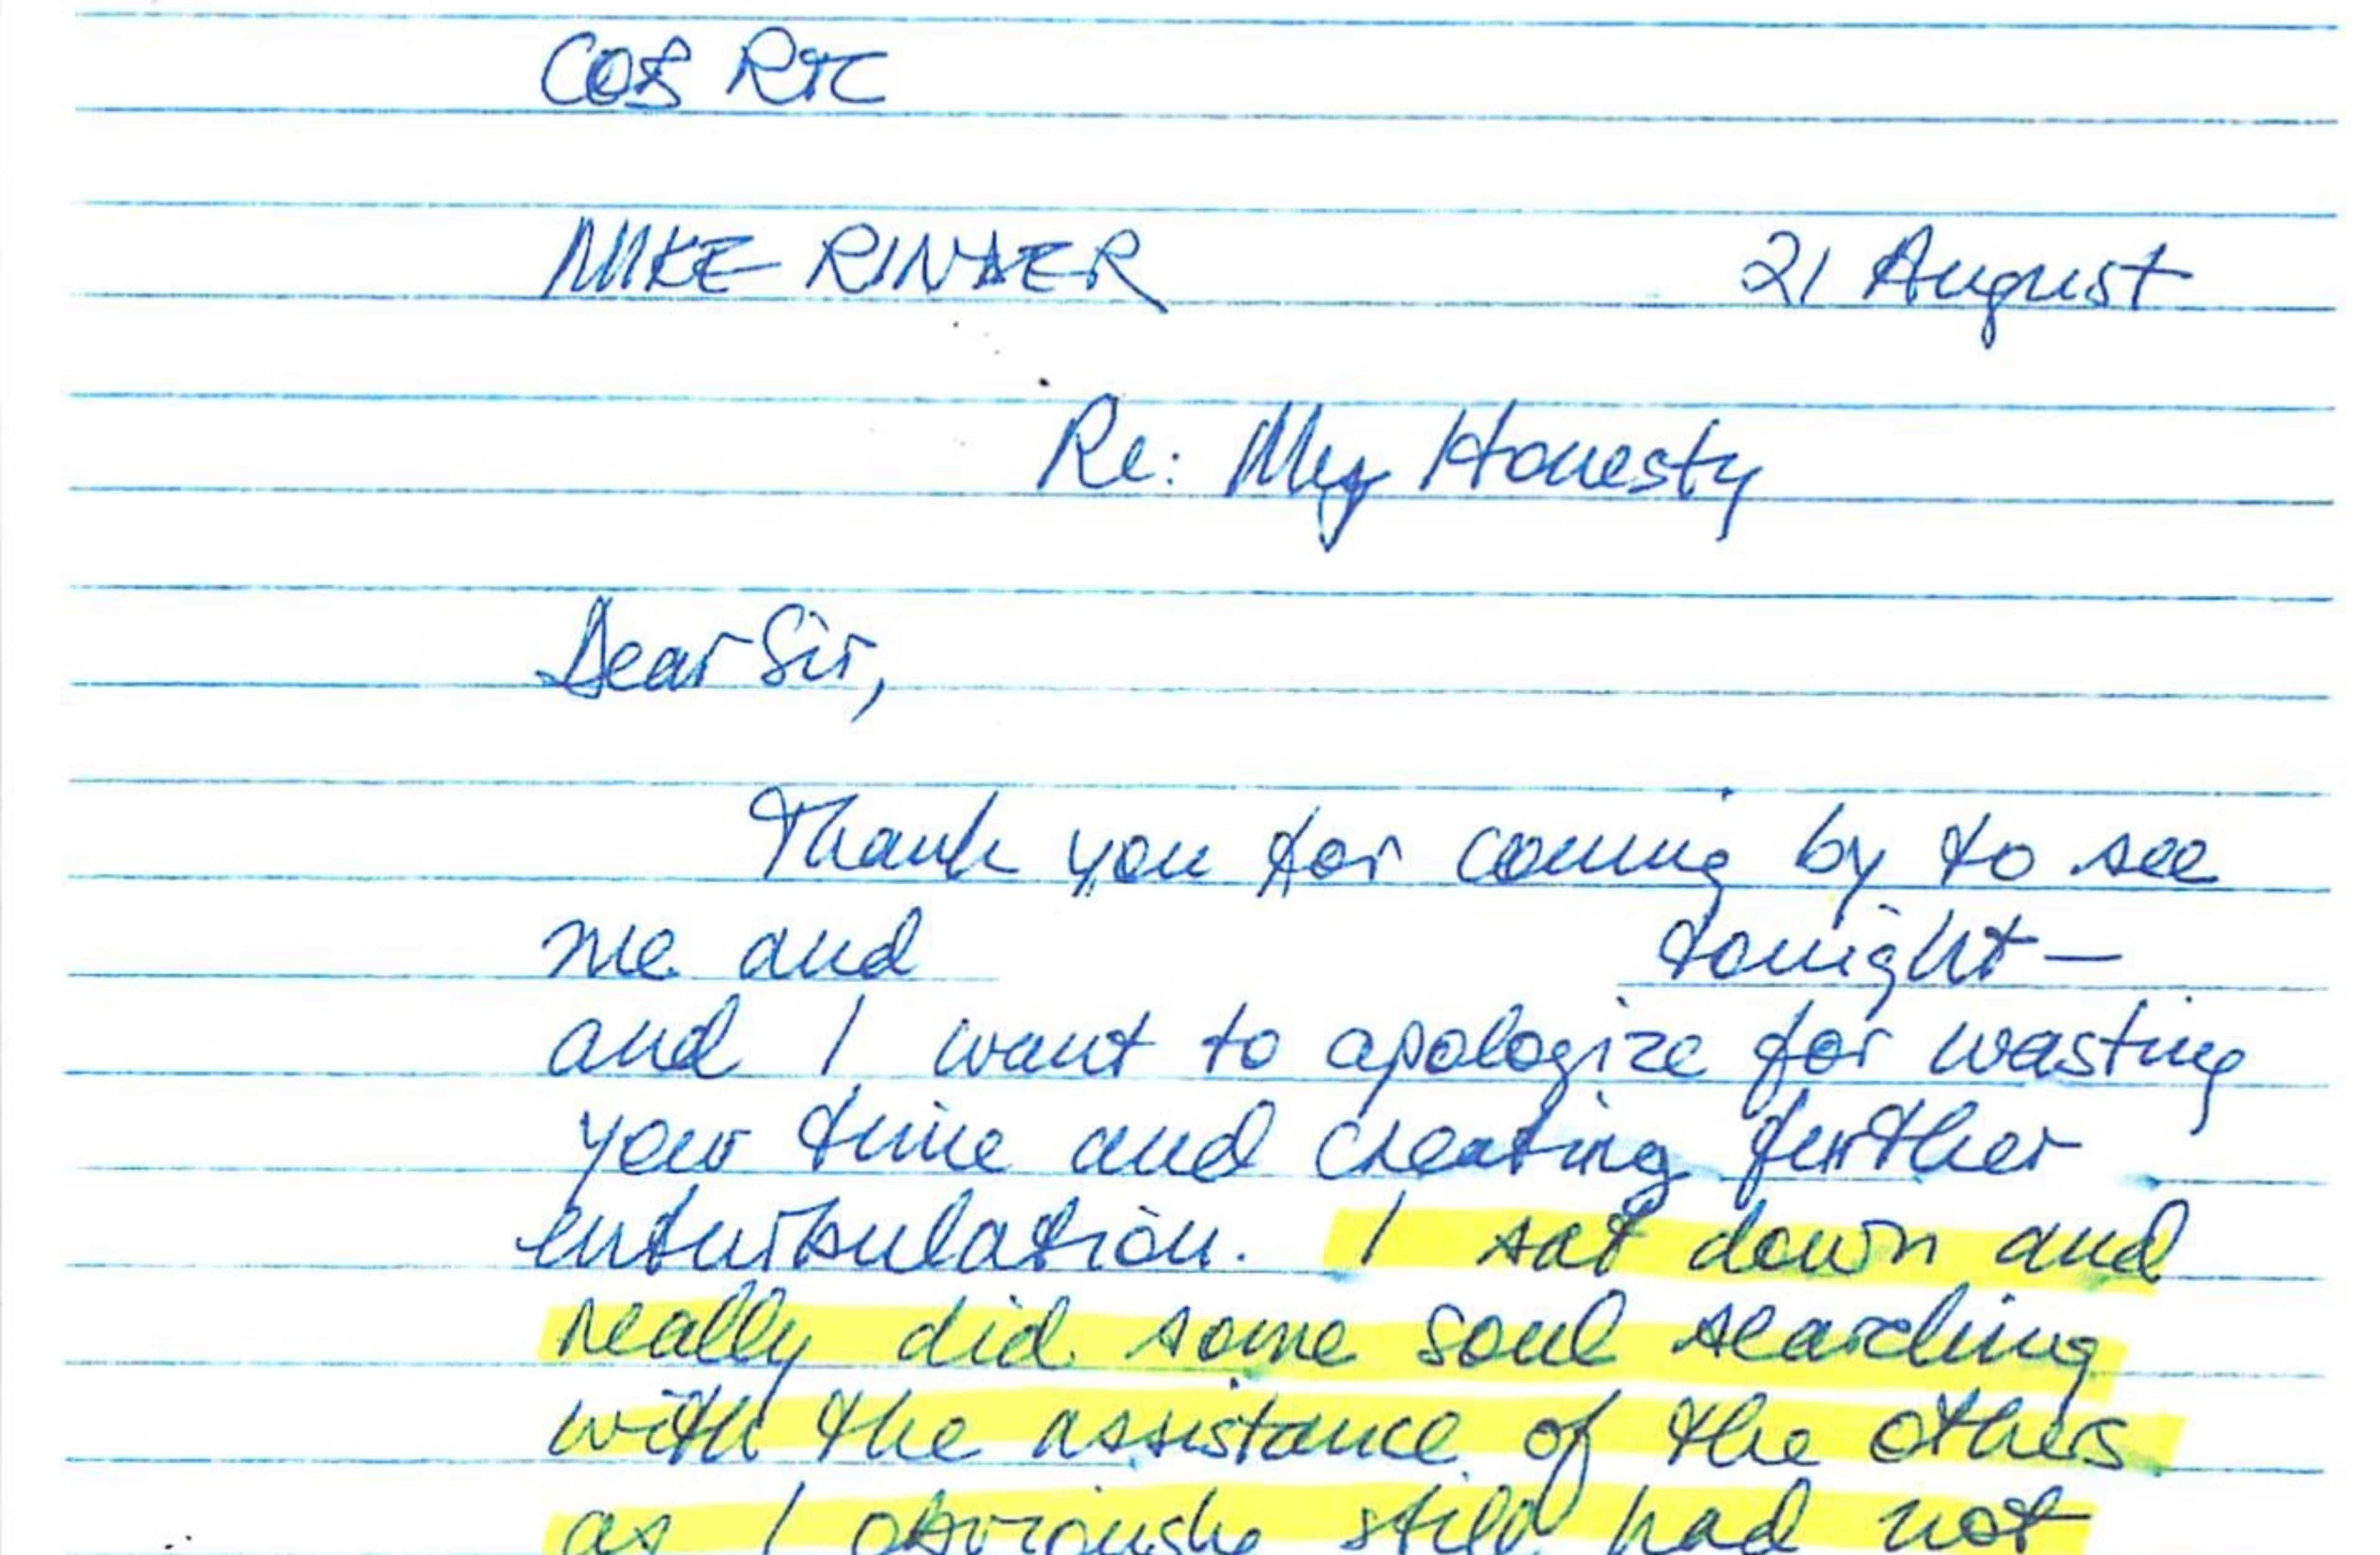 COB RTC
MIKE RINDER 21 August
Re: My Honesty
Dear Sir,
Thank you for coming by to see
me and tonight—
and I want to apologize for wasting
your time and creating further
enturbulation. I sat down and
really did some soul searching
with the assistance of the others
as I obviously still had not